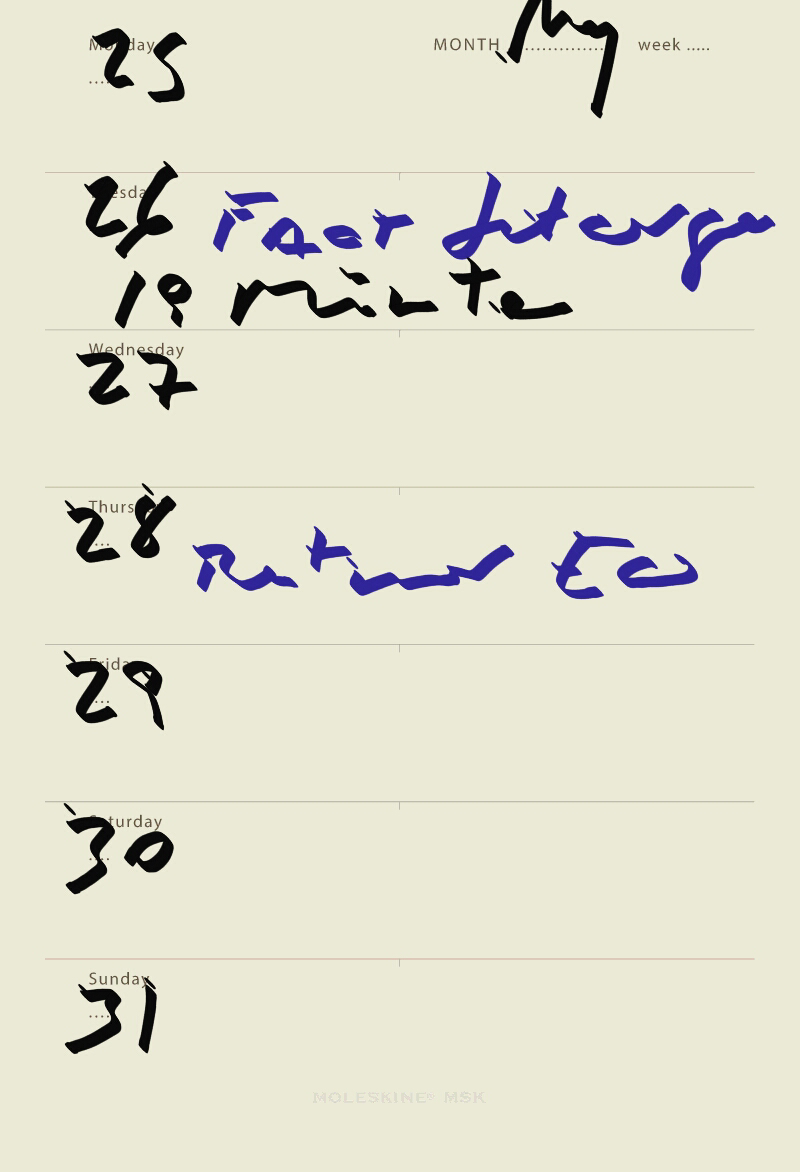 Monday 25 MONTH May week .....
Tuesday 26 Fact
19 minute
Wednesday
27
Thursday
28
Friday
29
Saturday
30
Sunday
31
MOLESKINE® MSK